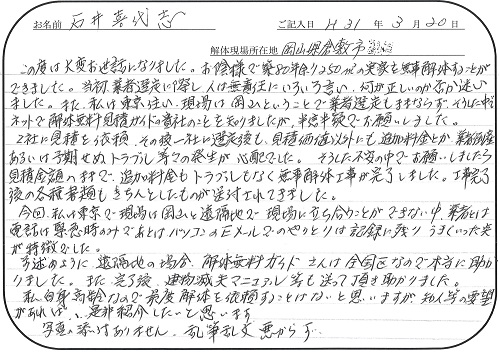 お名前 石井喜代志 ご記入日 H31年3月20日
解体現場所在地 岡山県倉敷市
この度は大変お世話になりました。お陰様で築80年余り250㎡の実家を無事解体することが
できました。当初、業者選定に際し、人は無責任にいろいろ言い、何が正しいのか迷い
ました。また、私は東京住い、現場は岡山ということで業者選定もままならず、そんな中
ネットで解体無料見積ガイドの貴社のことを知りましたが、半信半疑でお願いしました。
2社に見積を依頼、その後一社に選定後も、見積価格以外にも追加料金とか、業者倒産
あるいは予期せぬトラブル等々の発生が心配でした。そうした不安の中でお願いしましたら
見積金額のままで、追加料金もトラブルもなく無事解体工事が完了しました。工事完了
後の各種書類もきちんとしたものが送付されてきました。
今回、私が東京で現場は岡山と遠隔地で現場に立ち合うことができない中、業者とは
電話は緊急時のみであとはパソコンのEメールでのやりとりは記録に残りうまくいった点
が特徴でした。
予述のように遠隔地の場合、解体無料ガイドさんは全国区なので本当に助か
りました。また完了後、建物滅失マニュアル等も送って頂き助かりました。
私自身高齢なので再度解体を依頼することはないと思いますが知人等の要望
があれば、是非紹介したいと思います
写真の添付はありません。乱筆乱文 悪からず